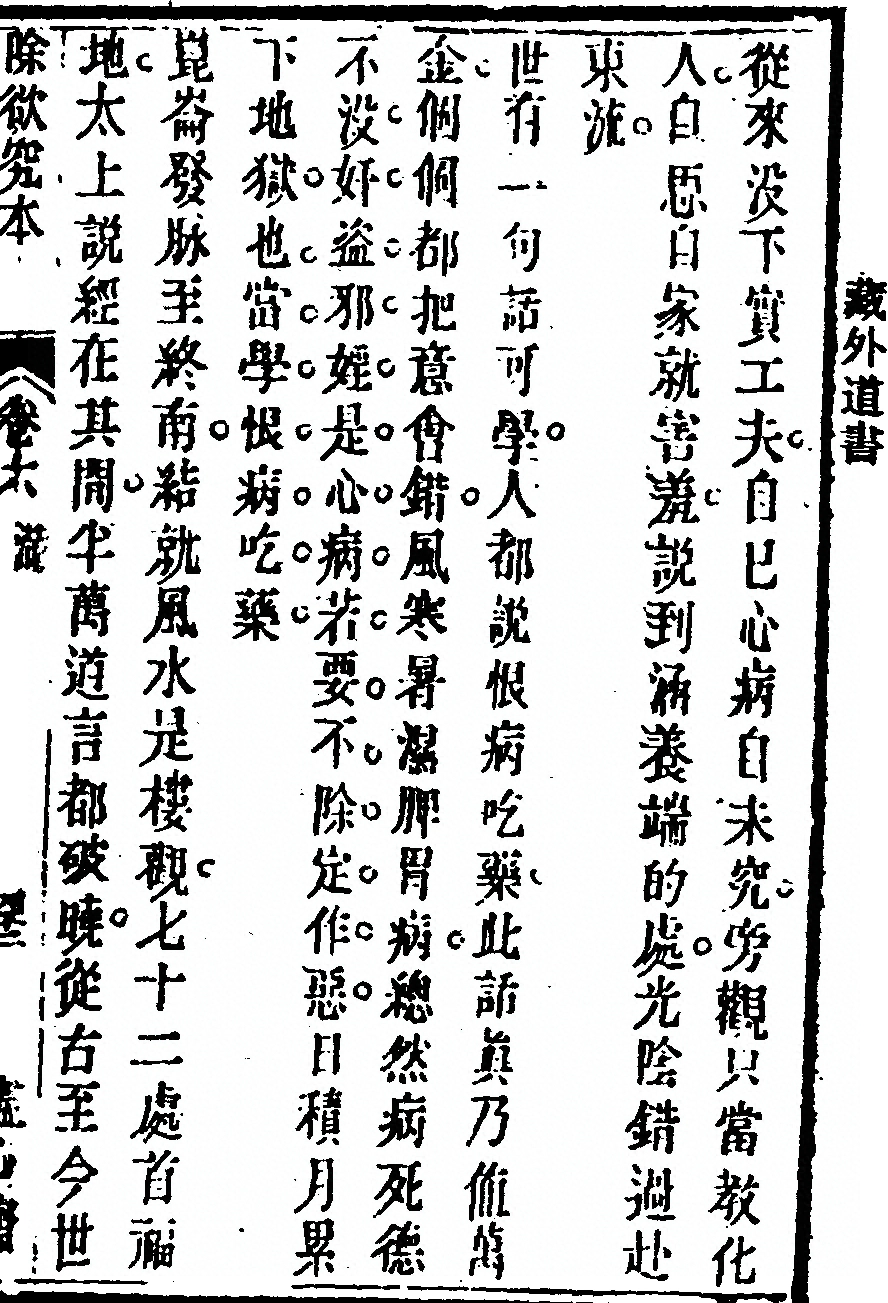 藏外道書
從來没下實工夫自己心病自未究旁觀只當教化
人自思自家就害羞説到涵養端的處光陰錯過赴
東流
世有一句話可學人都說恨病吃藥此話真乃值萬
金個個都把意會錯風寒暑濕脾胃病總然病死德
不没奸盜邪婬是心病若要不除定作惡日積月累
下地獄也當學恨病吃藥
崑崙發脉至終南結就風水是樓觀七十二處首福
地太上說經在其間半萬道言都破曉從古至今世
除欲究本
卷六